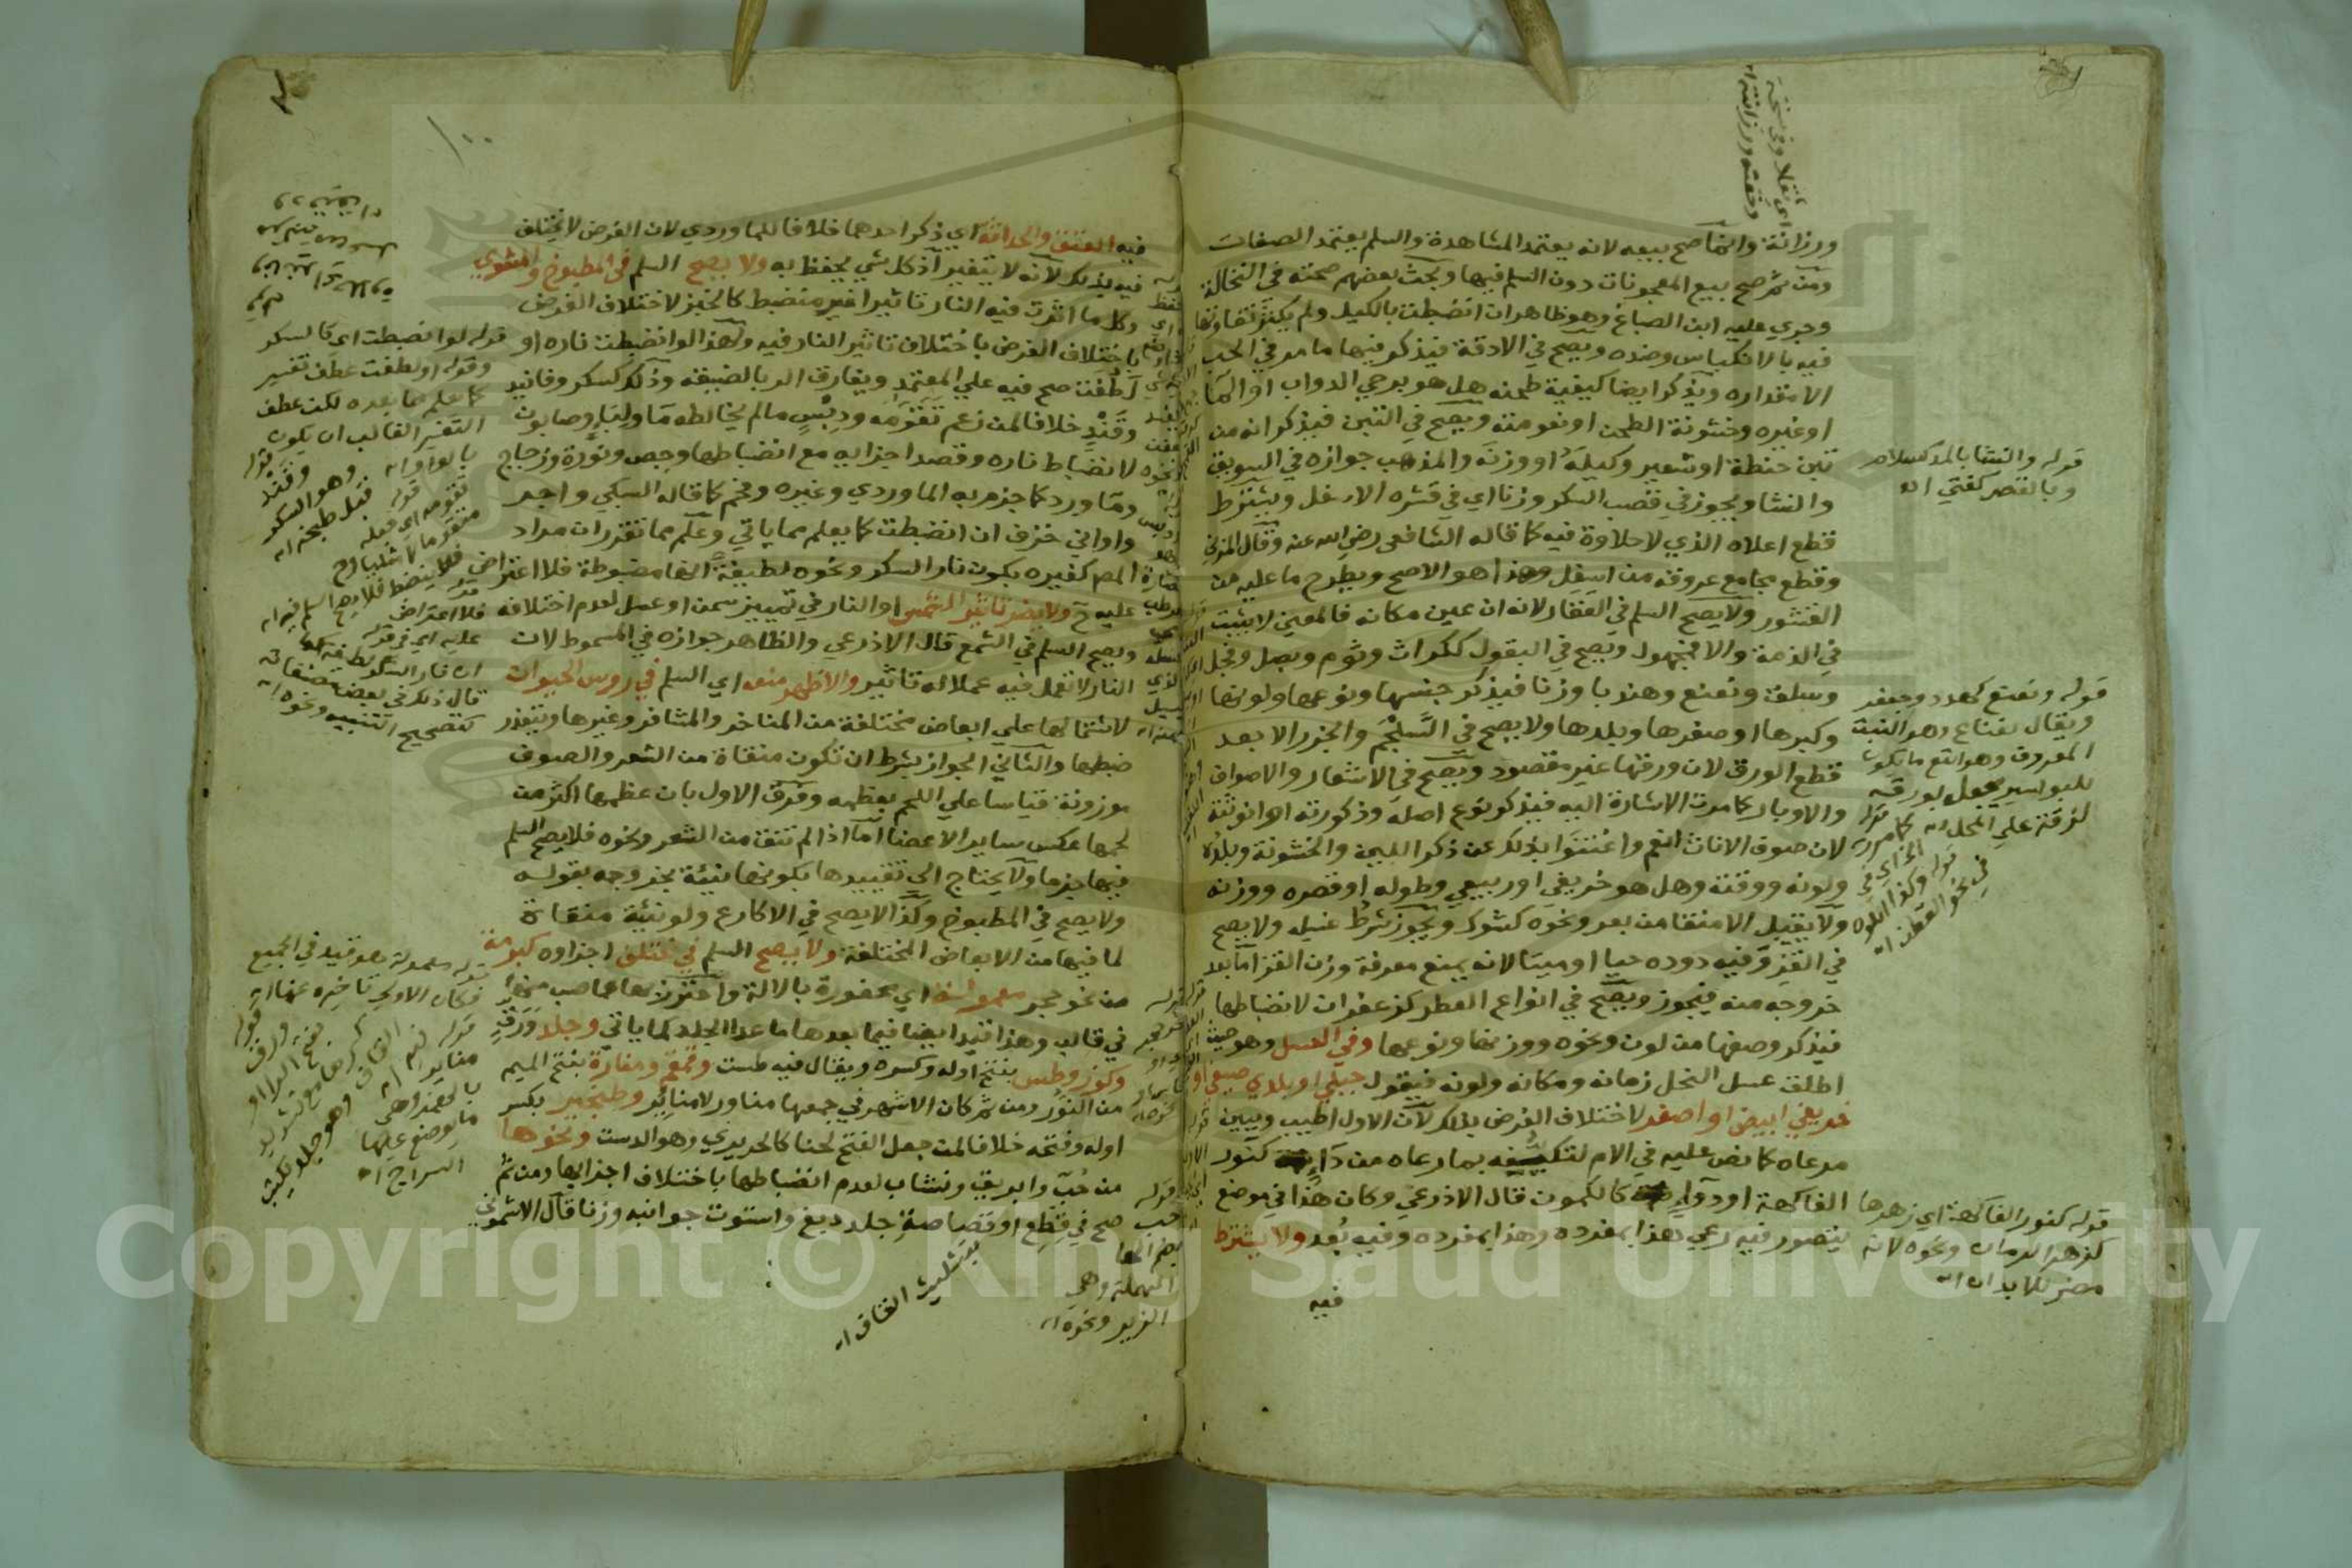 ورزانة وانما صح بيعه لانه يعتمد المشاهدة والسلم يعتمد الصفات
ومن ثم صح بيع المعجونات دون السلم فيها وبحث بعضهم صحته في النخالة
وجري عليه ابن الصباغ وهو ظاهر ان انضبطت بالكيل ولم يكثر تفاوتها
فيه بالانكباس وضده ويصح في الادقة فيذكر فيها ما مر في الحب
الا مقداره ويذكر ايضا كيفية طحنه هل هو برحي الدواب او الما
او غيره وخشونة الطحن او نعومته ويصح في التبن فيذكر انه من
تبن حنطة او شعير وكيله او وزنه والمذهب جوازه في السويق
والنشا ويجوز في قصب السكر وزنا اي في قشره الاسفل ويشترط
قطع اعلاه الذي لا حلاوة فيه كما قاله الشافعي رضي الله عنه وقال المزني
وقطع مجامع عروقه من اسفل وهذا هو الاصح ويطرح ما عليه من
القشور ولا يصح السلم في العقار لانه ان عين مكانه فالمعين لا يثبت
في الذمة والا فمجهول ويصح في البقول ككراث وثوم وبصل وفجل
وسلق ونعنع وهندبا وزنا فيذكر جنسها ونوعها ولونها
وكبرها او صغرها وبلدها ولا يصح في السلجم والجزر الا بعد
قطع الورق لان ورقها غير مقصود ويصح في الاشعار والاصواف
والاوبار كما مرت الاشارة اليه فيذكر نوع اصله وذكورته او انوثته
لان صوف الاناث انعم واغتنوا بذلك عن ذكر اللين والخشونة وبلده
ولونه ووقته وهل هو خريفي او ربيعي وطوله او قصره ووزنه
ولا يقبل الا منقا من بعر ونحوه كشوك ويجوز شرط غسله ولا يصح
في القز وفيه دوده حيا او ميتا لانه يمنع معرفة وزن القز اما بعد
خروجه منه فيجوز ويصح في انواع العطر كزعفران لانضباطها
فيذكر وصفها من لون ونحوه ووزنها ونوعها وفي العسل وهو حيث
اطلق عسل النحل زمانه ومكانه ولونه فيقول جبلي او بلدي صيفي او
خريفي ابيض او اصفر لاختلاف الغرض بذلك لان الاول اطيب ويبين
مرعاه كما نص عليه في الام لتكيفه بما رعاه من دا كنور
الفاكهة او دوا كالكمون قال الاذرعي وكان هذا في موضع
يتصور فيه رعي هذا بمفرده وهذا بمفرده وفيه بعد ولا يشترط
فيه
اي ثقلا وفي نسخة
قوله والنشا بالمد كسلام
وبالقصر كفتي اه
قوله ونعنع كهدد وجعفر
ويقال نعناع وهو النبت
المعروف وهو انفع ما يكون
للبواسير يجعل بورقه
لزقة علي المحل اه
قوله كنور الفاكهة اي زهرها
كزهر الرمان ونحوه لانه
مضر للابدان اه
١٠٠
فيه العتق والحداثة اي ذكر احدهما خلافا للماوردي لان الغرض لا يختلف
فيه بذلك لانه لا يتغير اذ كل شي يحفظ به ولا يصح السلم في المطبوخ والمشوي
وكل ما اثرت فيه النار تاثيرا غير منضبط كالخبز لاختلاف الغرض
باختلاف الغرض باختلاف تاثير النار فيه ولهذا لو انضبطت ناره او
لطفت صح فيه علي المعتمد ويفارق الربا لضيقه وذلك كسكر وفانيد
وقند خلافا لمن زعم تقومه ودبس ما لم يخالطه ما ولبا وصابون
لانضباط ناره وقصد اجزايه مع انضباطها وجص ونورة وزجاج
وما ورد كما جزم به الماوردي وغيره وفحم كما قاله السبكي واجر
واواني خزف ان انضبطت كما يعلم مما ياتي وعلم مما تقرر ان مراد
المص كغيره بكون نار السكر ونحوه لطيفة انها مضبوطة فلا اعتراض
عليه ح ولا يضر تاثير الشمس او النار في تمييز سمن او عسل لعدم اختلافه
ويصح السلم في الشمع قال الاذرعي والظاهر جوازه في المسموط لان
النار لا تعمل فيه عملا له تاثير والاظهر منعه اي السلم في روس الحيوان
لاشتمالها علي ابعاض مختلفة من المناخر والمشافر وغيرها ويتعذر
ضبطها والثاني الجواز بشرط ان تكون منقاة من الشعر والصوف
موزونة قياسا علي اللحم بعظمه وفرق الاول بان عظمها اكثر من
لحمها عكس ساير الاعضا اما اذا لم تنق من الشعر ونحوه فلا يصح السلم
فيها جزما ولا يحتاج الي تقييدها بكونها نيئة بخروجه بقوله
ولا يصح في المطبوخ وكذا لا يصح في الاكارع ولو نيئة منقاة
لما فيها من الابعاض المختلفة ولا يصح السلم في مختلف اجزاوه كبرمة
من نحو حجر معمولة اي محفورة بالالة واحترز بها عما صب منها
في قالب وهذا قيد ايضا فيما بعدها ما عدا الجلد كما ياتي وجلد ورق
وكوز وطس بفتح اوله وكسره ويقال فيه طست وقمقم ومنارة بفتح الميم
من النور ومن ثم كان الاشهر في جمعها مناور لا مناير وطنجير بكسر
اوله وفتحه خلافا لمن جعل الفتح لحنا كالحريري وهو الدست ونحوها
من حب وابريق ونشاب لعدم انضباطها باختلاف اجزايها ومن ثم
صح في قطع او قصاصة جلد دبغ واستوت جوانبه وزنا قال الاشموني
قوله لو انضبطت اي كالسكر
وقوله او لطفت عطف تفسير
كما يعلم مما بعده لكن عطف
التفسير الغالب ان يكون
بالواو اه
وقند
وهو السكر
قبل طبخه اه
فلا اعتراض
عليه اي في قوله
ان نار السكر لطيفة كما
قال ذلك في بعض مصنفاته
كتصحيح التنبيه ونحوه اه
قوله معمولة هو قيد في الجميع
فكان الاولي تاخيره عنها اه
ما يوضع عليها
السراج اه
بتثليث القاف اه
بضم الحا
المهملة وهي
الزير ونحوه اه
Copyright © King Saud University